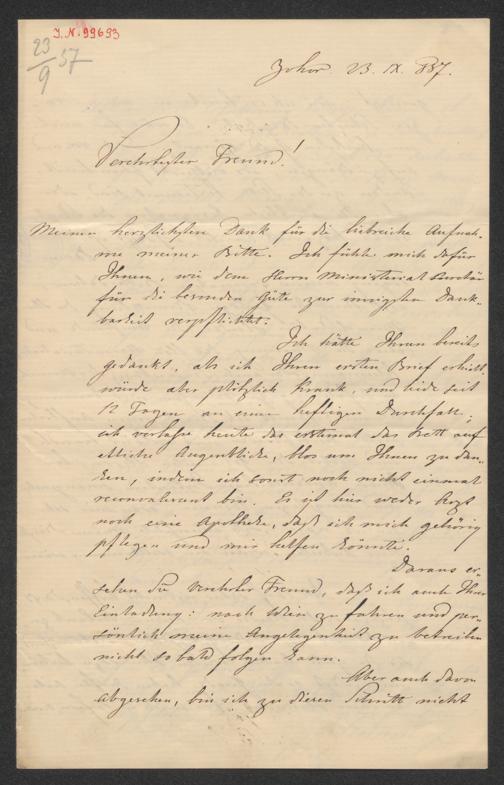 J. N. 99693
23/9 57
Zohor 23. IX. 887.
Verehrtester Freund!
Meinen herzlichsten Dank für die liebreiche Aufnah-
me meiner Bitte. Ich fühle mich dafür
Ihnen, wie dem Herrn Ministerial Secretär
für die besondere Güte zur innigsten Dank-
barkeit verpflichtet.
Ich hätte Ihnen bereits
gedankt, als ich Ihren ersten Brief erhielt,
würde aber plötzlich krank, und leide seit
12 Tagen an einem heftigen Durchfall;
ich verlasse heute das erstemal das Bett auf
etliche Augenblicke, blos um Ihnen zu dan-
ken, indem ich sonst noch nicht einmal
reconvalescent bin. Es ist hier weder Arzt
noch eine Apotheke, daß ich mich gehörig
pflegen und mir helfen könnte.
Daraus er-
sehen Sie verehrter Freund, daß ich auch Ihrer
Einladung: nach Wien zu fahren und per-
sönlich meine Angelegenheit zu betreiben
nicht so bald folgen kann.
Aber auch davon
abgesehen, bin ich zu diesen Schritt nicht